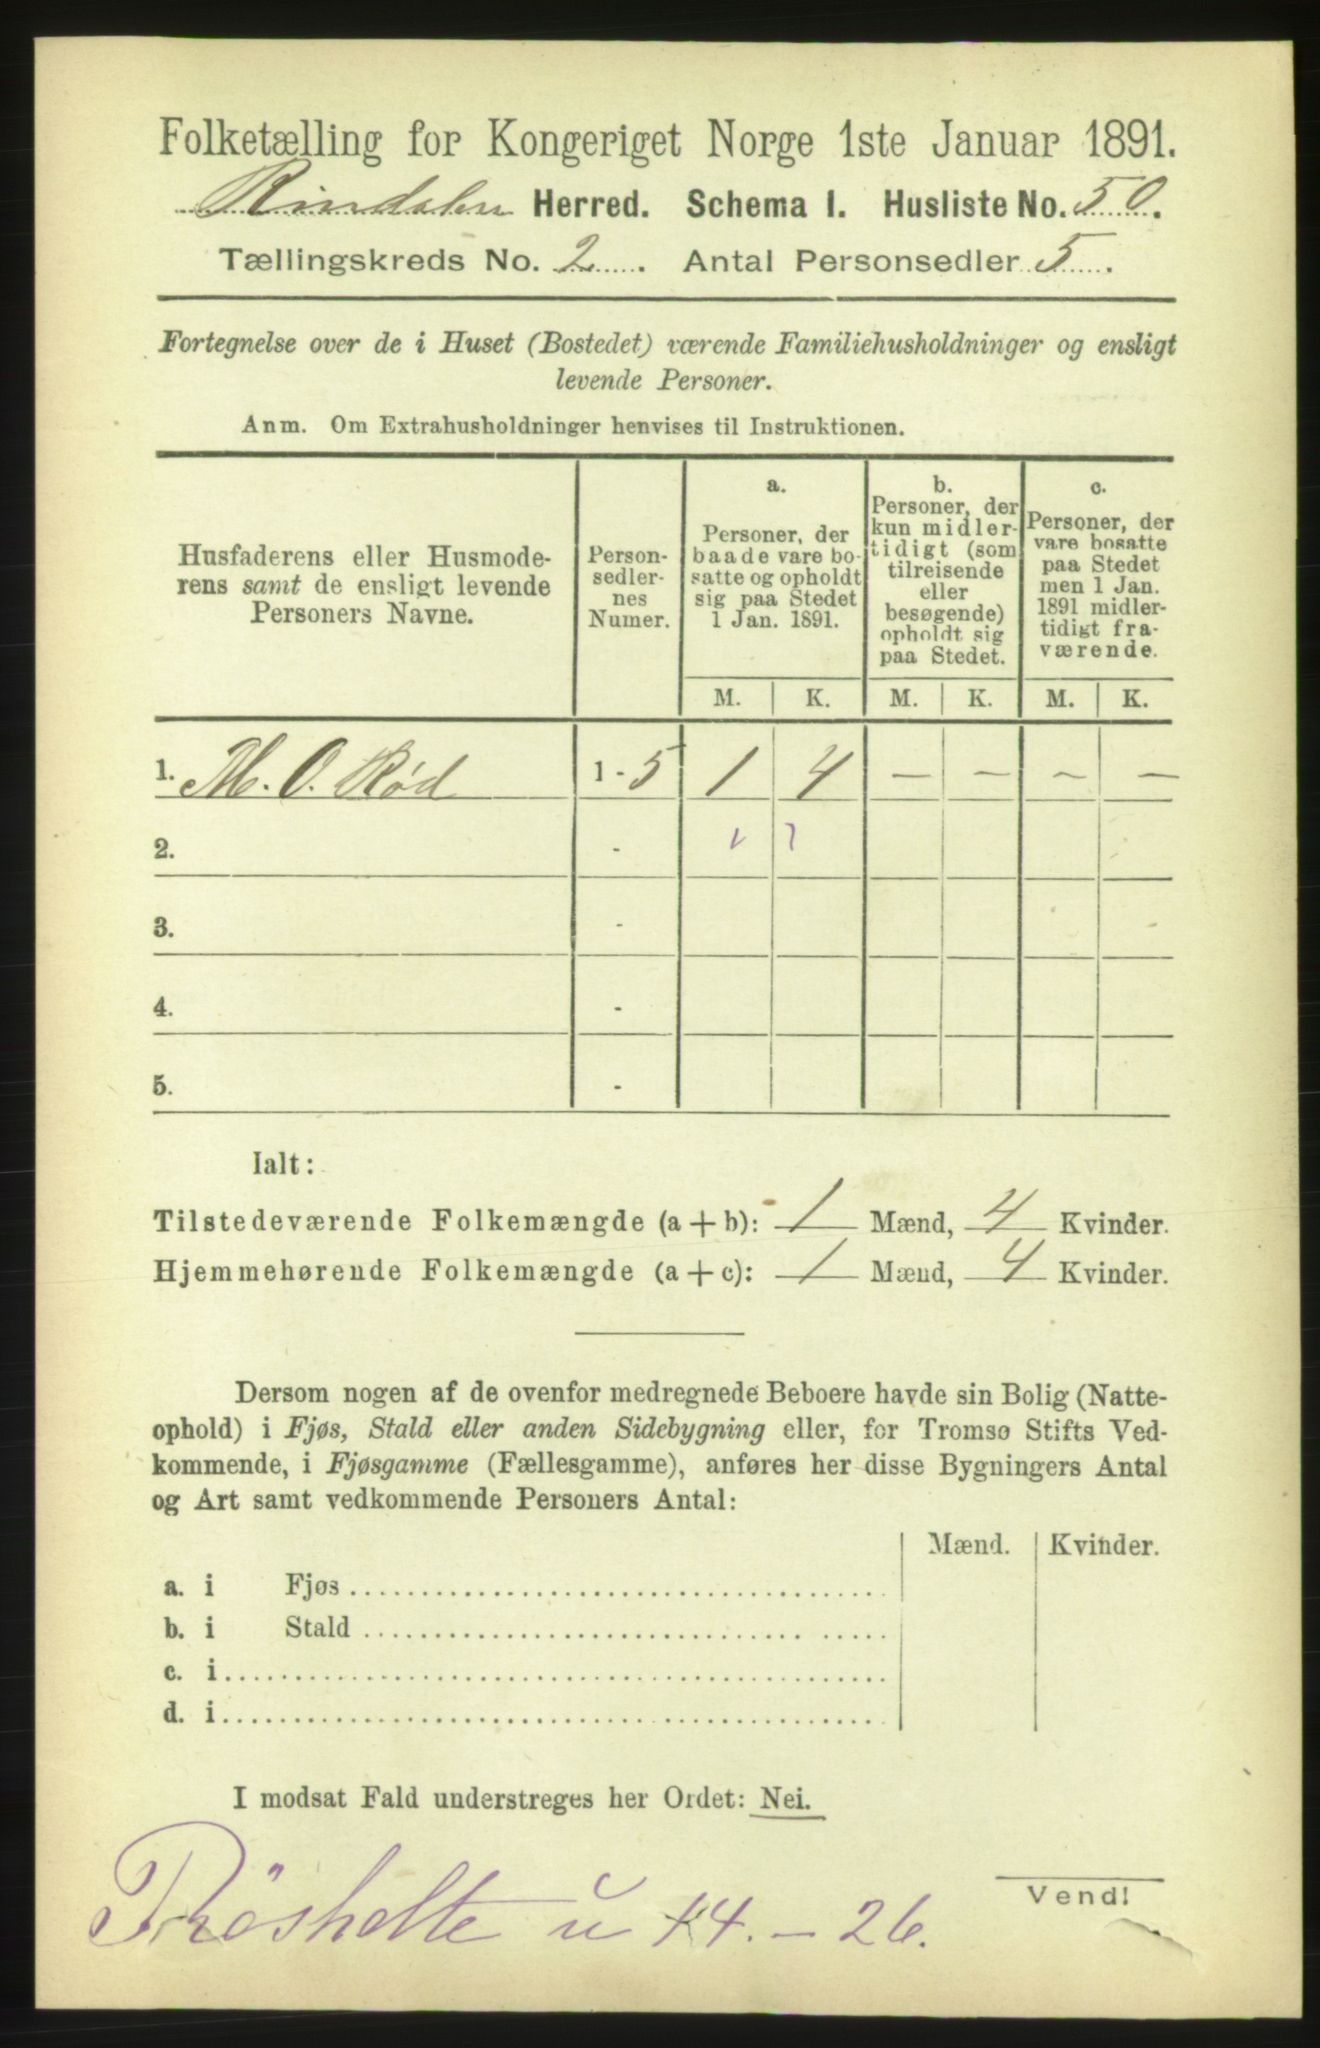 Folketælling for Kongeriget Norge 1ste Januar 1891.
Rindalen Herred. Schema I. Husliste No. 50.
Tællingskreds No. 2. Antal Personsedler 5.
Fortegnelse over de i Huset (Bostedet) værende Familiehusholdninger og ensligt
levende Personer.
Anm. Om Extrahusholdninger henvises til Instruktionen.
Husfaderens eller Husmode-
rens samt de ensligt levende
Personers Navne.
Person-
sedler-
nes
Numer.
a.
Personer, der
baade vare bo-
satte og opholdt
sig paa Stedet
1 Jan. 1891.
b.
Personer, der
kun midler-
tidigt (som
tilreisende
eller
besøgende)
opholdt sig
paa Stedet.
c.
Personer, der
vare bosatte
paa Stedet
men 1 Jan.
1891 midler-
tidigt fra-
værende.
M. K. M. K. M. K.
1. M. O. Rød 1-5 1 4 — — — —
2. -
3. -
4. -
5. -
Ialt:
Tilstedeværende Folkemængde (a + b): 1 Mænd, 4 Kvinder.
Hjemmehørende Folkemængde (a + c): 1 Mænd, 4 Kvinder.
Dersom nogen af de ovenfor medregnede Beboere havde sin Bolig (Natte-
ophold) i Fjøs, Stald eller anden Sidebygning eller, for Tromsø Stifts Ved-
kommende, i Fjøsgamme (Fællesgamme), anføres her disse Bygningers Antal
og Art samt vedkommende Personers Antal:
Mænd. Kvinder.
a. i Fjøs
b. i Stald
c. i
d. i
I modsat Fald understreges her Ordet: Nei.
Vend!
u 44. - 26.